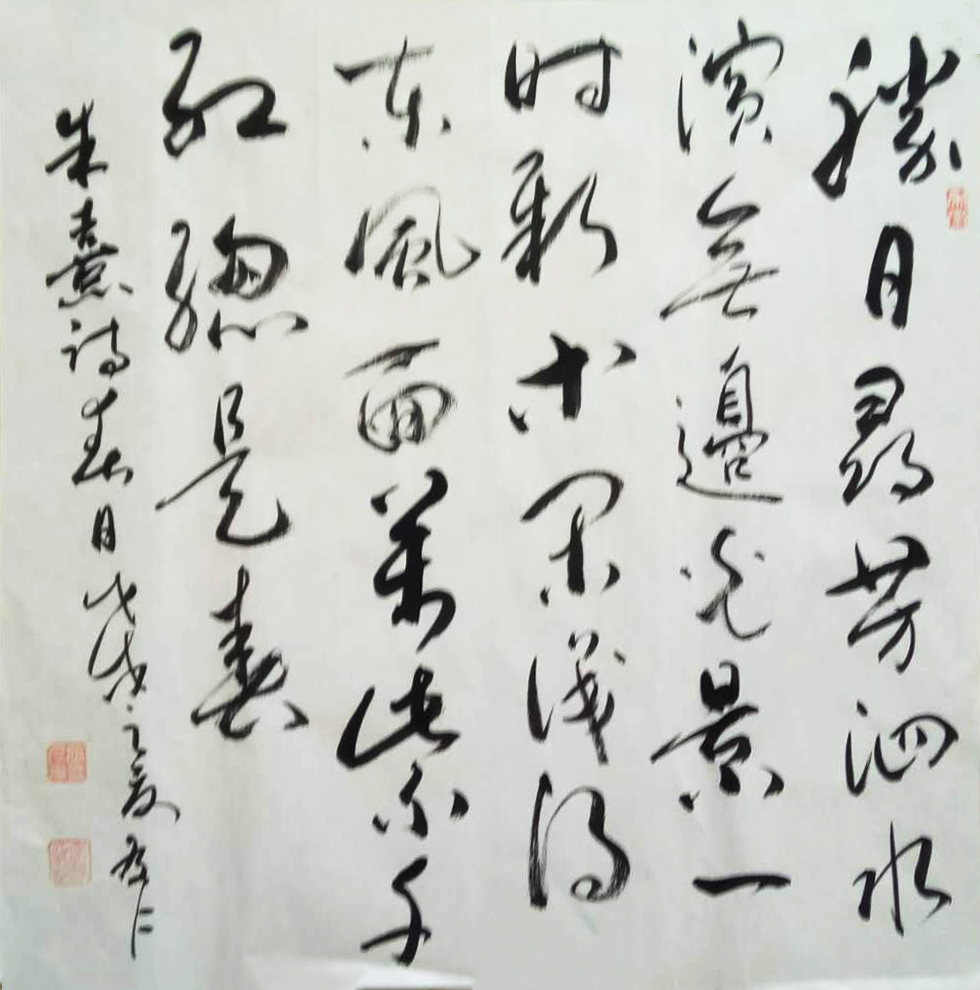 勝日尋芳泗水
濱無邊光景一
时新等闲識得
东風面萬紫千
红總是春
朱熹诗春日戊戌之夏